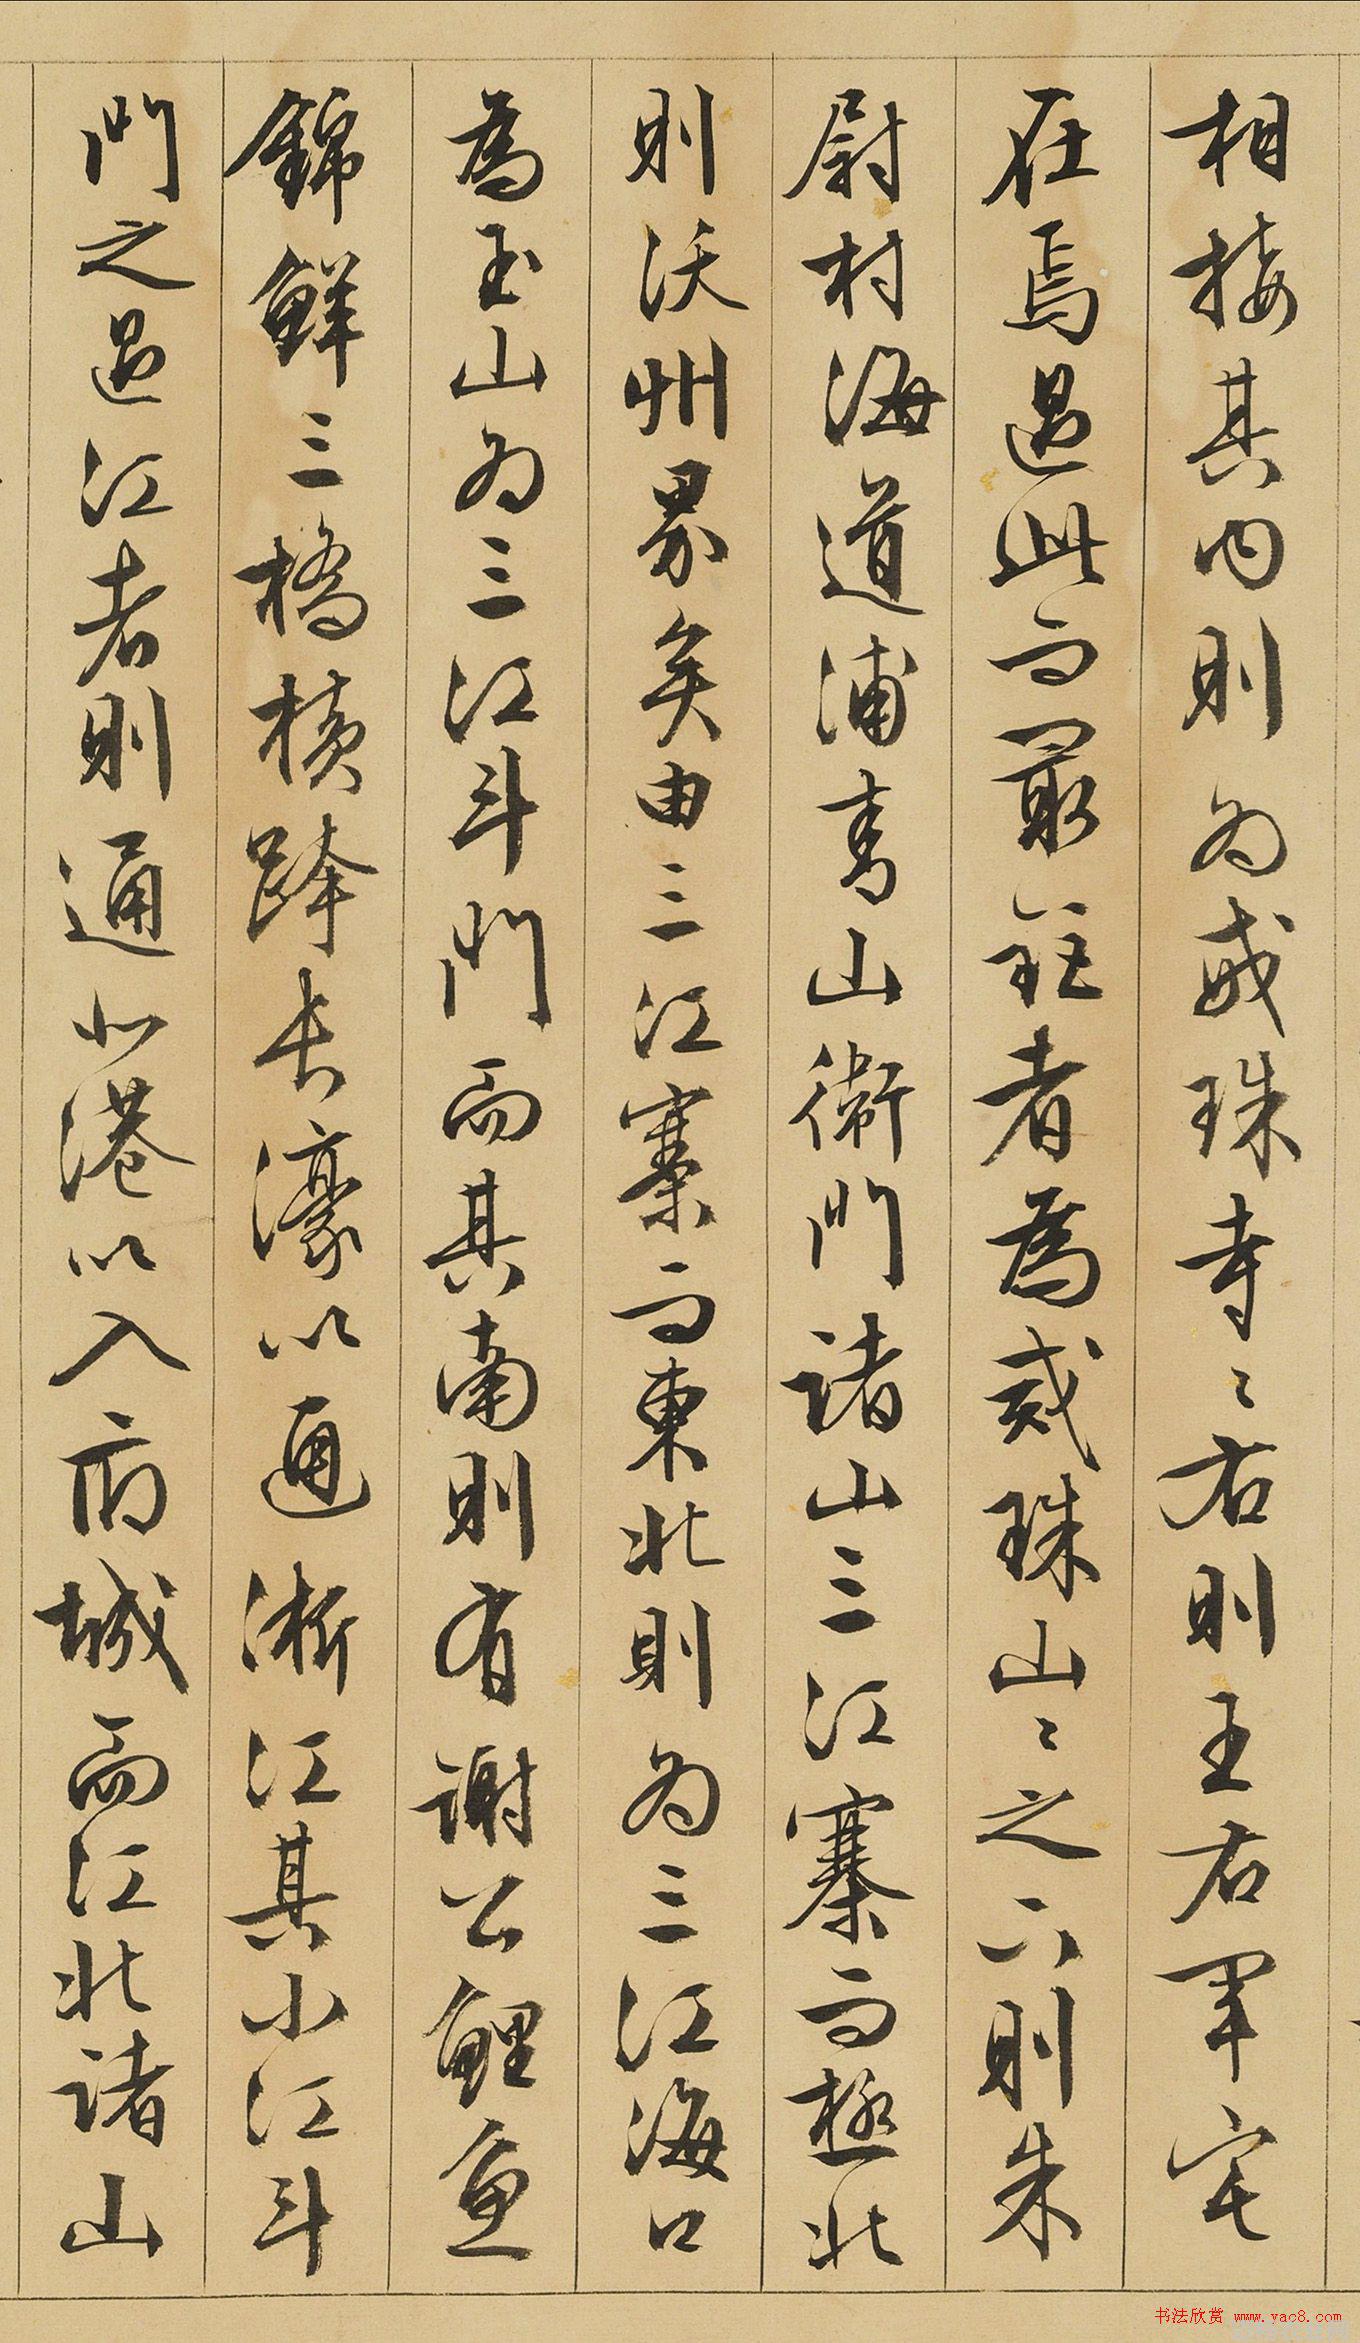 相接其内則為戒珠寺〻右則王右軍宅
在焉過此而最短者為戒珠山〻之下則朱
尉村海道浦青山衛門諸山三江寨而極北
則沃州界矣由三江寨而東北則為三江海口
為玉山為三江斗門而其南則有謝公鯉魚
錦鮮三橋横跨長濠以通淅江其小江斗
門之過江者則通小港以入府城而江北諸山
书法欣赏 www.yac8.com